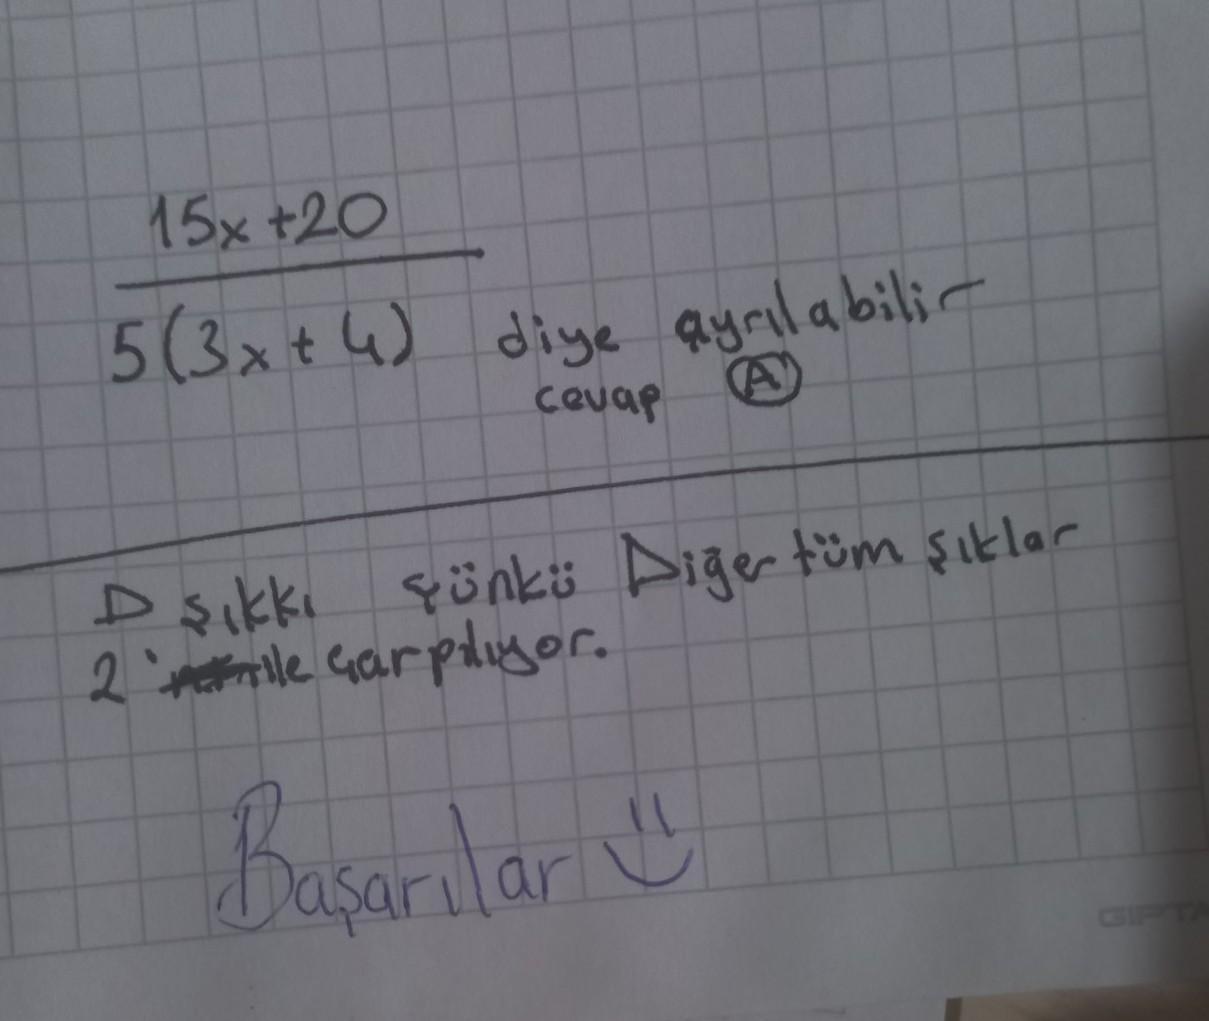 15x+20
5(3x+4) diye ayrılabilir
cevap A
D şıkkı çünkü Diğer tüm şıklar
2' ile çarpılıyor.
Başarılar
GIPTA